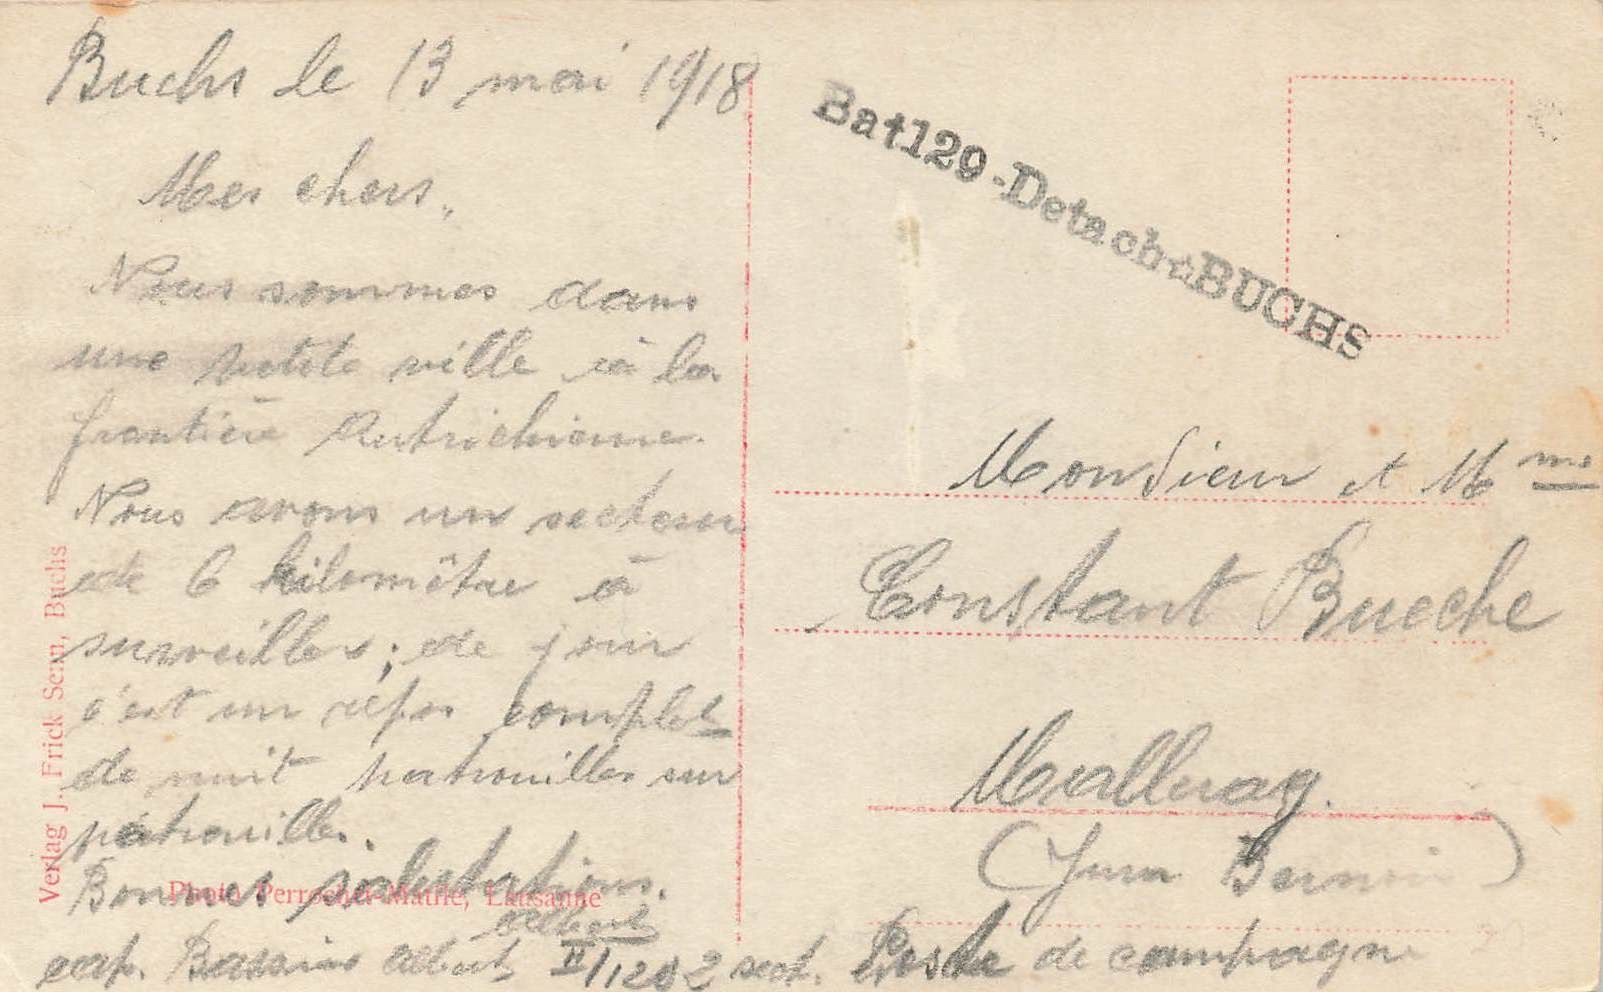 Buchs le 13 mai 1918
Mes chers,
Nous sommes dans
une petite ville à la
frontière Autrichienne.
Nous avons un secteur
de 6 kilomètre à
surveiller; de jour
c'est un repos complet
de nuit patrouilles sur
patrouilles.
Bonnes salutations.
Albert
cap. Bassin Albert II/129 2 sect. Poste de campagne
Verlag J. Frick Senn, Buchs
Photo Perrochet-Matile, Lausanne
Bat129-Detach.BUCHS
Monsieur et Mme
Constant Bueche
Malleray.
(Jura Bernois)